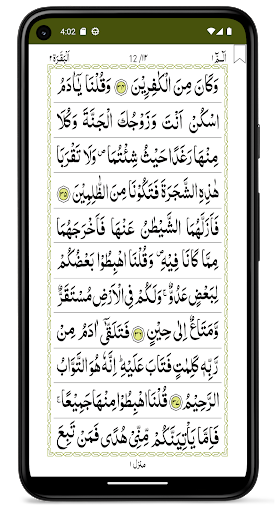 4:02
الٓمّٓ ١
12 /١٢
اَلْبَقَرَة ٢
وَكَانَ مِنَ الْكٰفِرِیْنَ ۝۳۴ وَقُلْنَا یٰۤاٰدَمُ
اسْكُنْ اَنْتَ وَزَوْجُكَ الْجَنَّةَ وَكُلَا
مِنْهَا رَغَدًا حَیْثُ شِئْتُمَا ۪ وَلَا تَقْرَبَا
هٰذِهِ الشَّجَرَةَ فَتَكُوْنَا مِنَ الظّٰلِمِیْنَ ۝۳۵
فَاَزَلَّهُمَا الشَّیْطٰنُ عَنْهَا فَاَخْرَجَهُمَا
مِمَّا كَانَا فِیْهِ ۪ وَقُلْنَا اهْبِطُوْا بَعْضُكُمْ
لِبَعْضٍ عَدُوٌّ ۚ وَلَكُمْ فِی الْاَرْضِ مُسْتَقَرٌّ
وَّمَتَاعٌ اِلٰی حِیْنٍ ۝۳۶ فَتَلَقّٰۤی اٰدَمُ مِنْ
رَّبِّهٖ كَلِمٰتٍ فَتَابَ عَلَیْهِ ؕ اِنَّهٗ هُوَ التَّوَّابُ
الرَّحِیْمُ ۝۳۷ قُلْنَا اهْبِطُوْا مِنْهَا جَمِیْعًا ۚ
فَاِمَّا یَاْتِیَنَّكُمْ مِّنِّیْ هُدًی فَمَنْ تَبِعَ
منزل ١